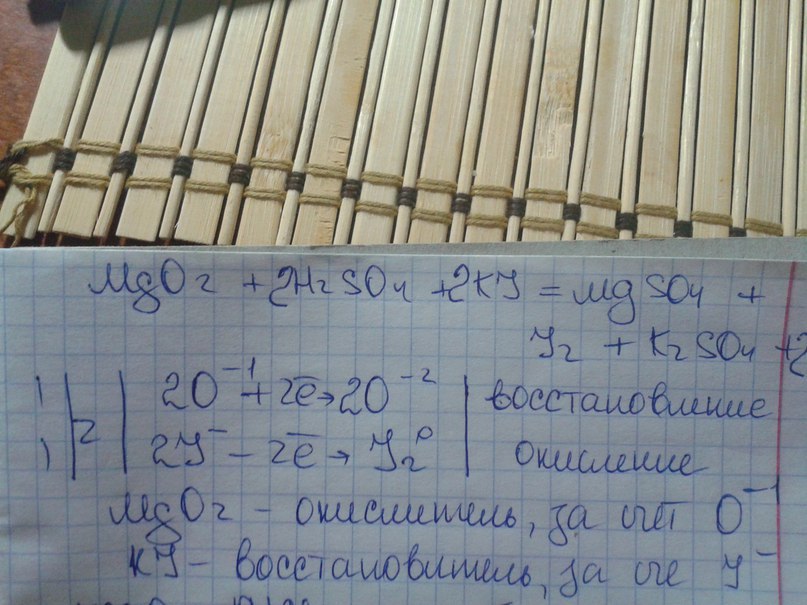 MgO2 + 2H2SO4 + 2KJ = MgSO4 +
J2 + K2SO4 + 2
1 | 2 | 2O⁻¹ + 2e̅ → 2O⁻² | восстановление
1 | 2J⁻ − 2e̅ → J2⁰ | окисление
MgO2 – окислитель, за счёт O⁻¹
KJ – восстановитель, за сче J⁻